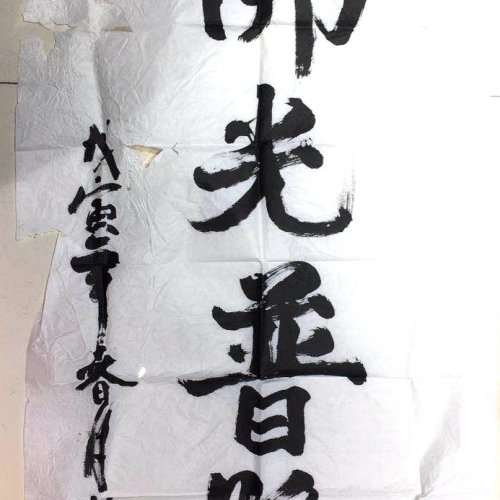 佛光普照
戊寅年春月